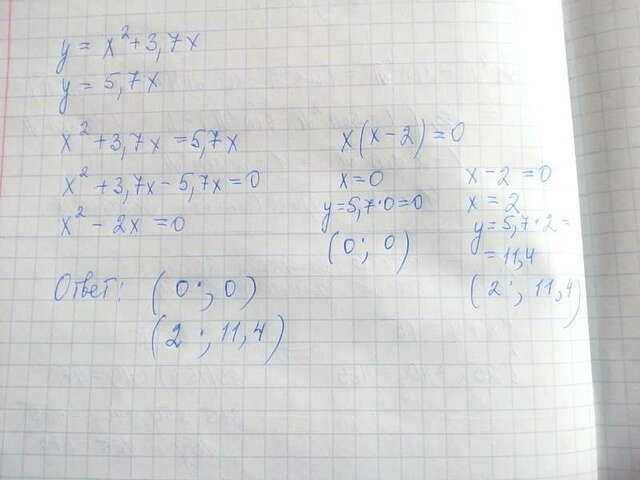 y = x² + 3,7x
y = 5,7x
x² + 3,7x = 5,7x
x² + 3,7x - 5,7x = 0
x² - 2x = 0
x(x - 2) = 0
x = 0
y = 5,7·0 = 0
(0; 0)
x - 2 = 0
x = 2
y = 5,7·2 =
= 11,4
(2; 11,4)
Ответ: (0; 0)
(2; 11,4)